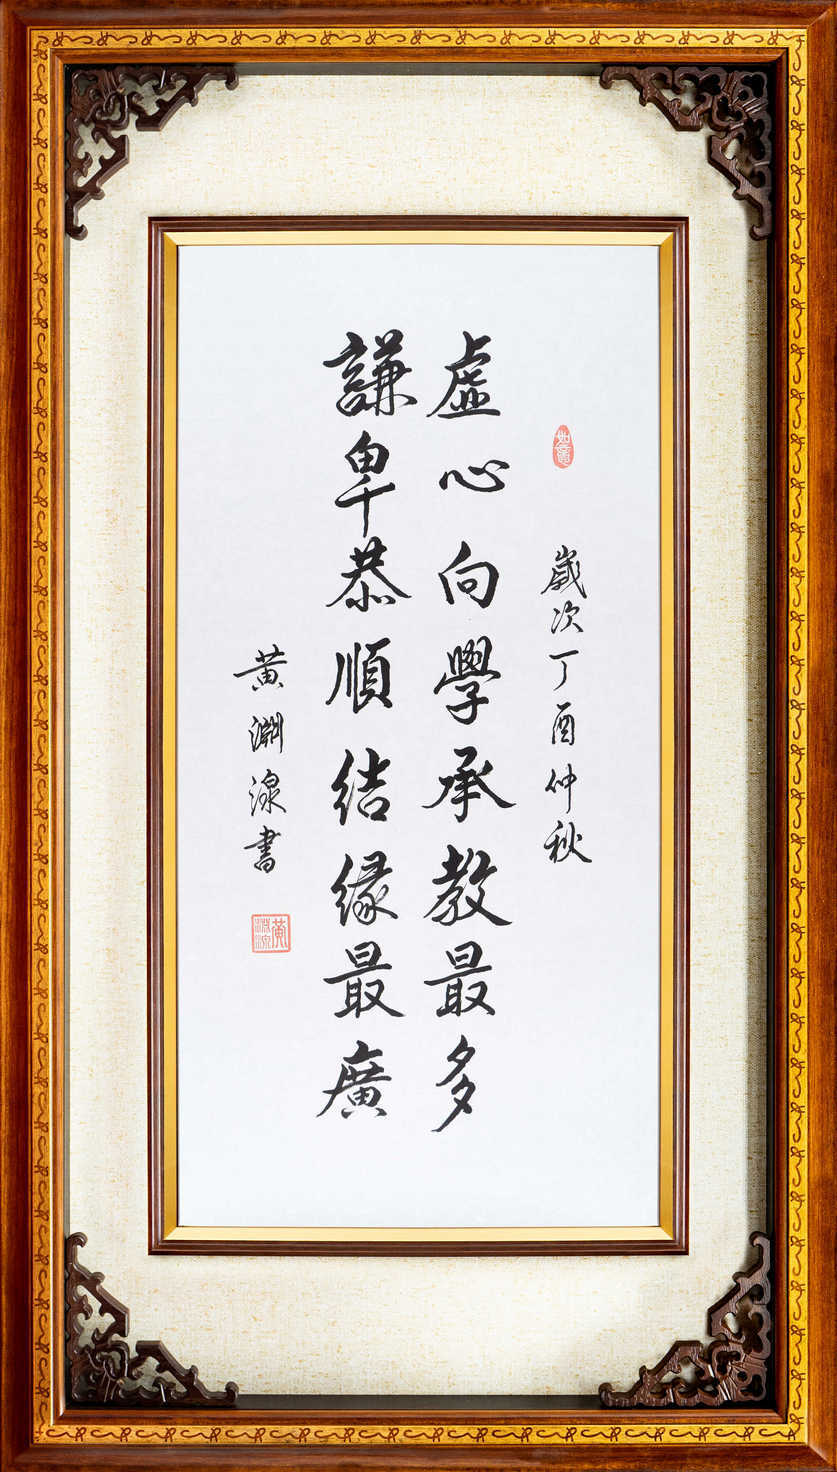 如意
歲次丁酉仲秋
虛心向學承教最多
謙卑恭順結緣最廣
黃淵湶書